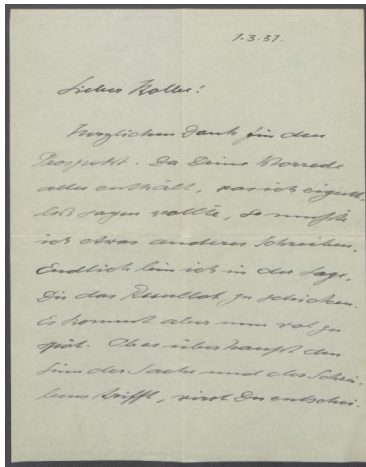 1.3.37.
Lieber Kolle!
Herzlichen Dank für den
Prospekt. Da Deine Vorrede
alles enthält, was ich eigent-
lich sagen wollte, so mußte
ich etwas anderes schreiben.
Endlich bin ich in der Lage,
Dir das Resultat zu schicken.
Es kommt aber nun wol zu
spät. Ob es überhaupt den
Sinn der Sache und des Schrei-
bens trifft, wirst Du entschei-